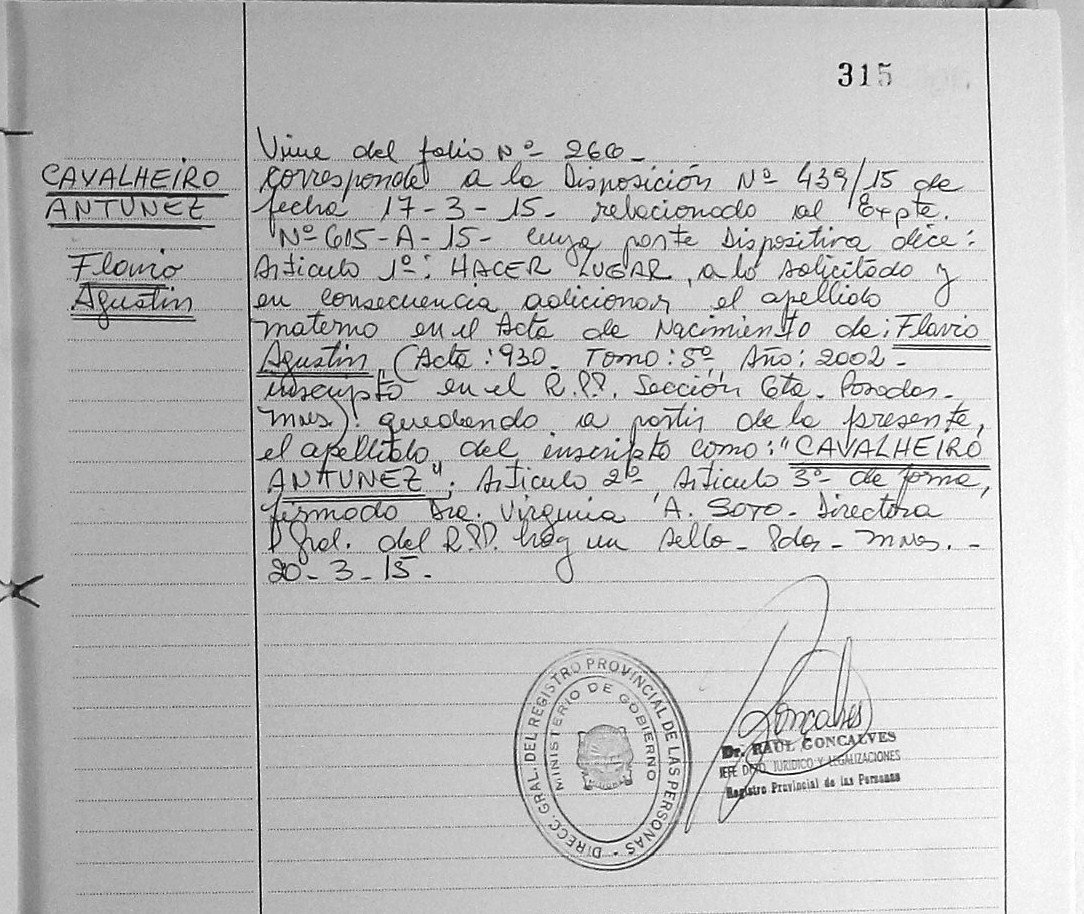 315
CAVALHEIRO
ANTUNEZ
Flavio
Agustin
Viene del folio Nº 266-
corresponde a la Disposición Nº 439/15 de
fecha 17-3-15- relacionado al Expte.
Nº 615-A-15- cuya parte Dispositiva dice:
Articulo 1º: HACER LUGAR a lo solicitado y
en consecuencia adicionar el apellido
materno en el Acta de Nacimiento de: Flavio
Agustin (Acta: 930. Tomo: 5º Año: 2002-
inscripto en el R.P.P. Sección 6ta. Posadas-
Mnes). quedando a partir de la presente,
el apellido del inscripto como: "CAVALHEIRO
ANTUNEZ". Articulo 2º Articulo 3º de forma,
firmado Dra. Virginia A. SOTO- Directora
Gral. del R.P.P. hay un sello- Pdas- Mnes.-
20-3-15-
DIRECC. GRAL. DEL REGISTRO PROVINCIAL DE LAS PERSONAS
MINISTERIO DE GOBIERNO
Goncalves
Dr. RAUL GONCALVES
JEFE DPTO JURIDICO Y LEGALIZACIONES
Registro Provincial de las Personas